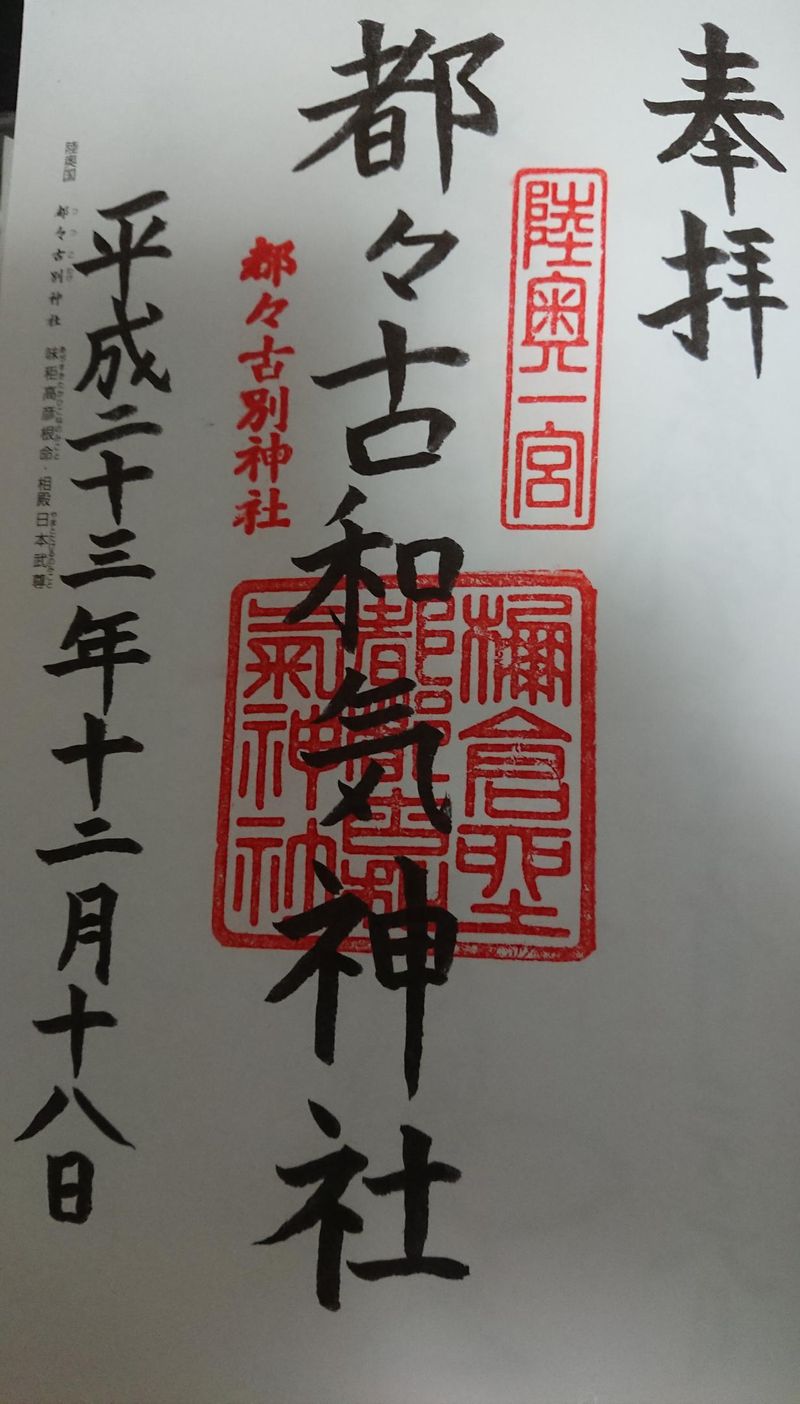 奉拝
陸奥一宮
都々古和気神社
氣神社
都々古別神社
平成二十三年十二月十八日
陸奥国 都々古別神社 味耜高彦根命・相殿日本武尊